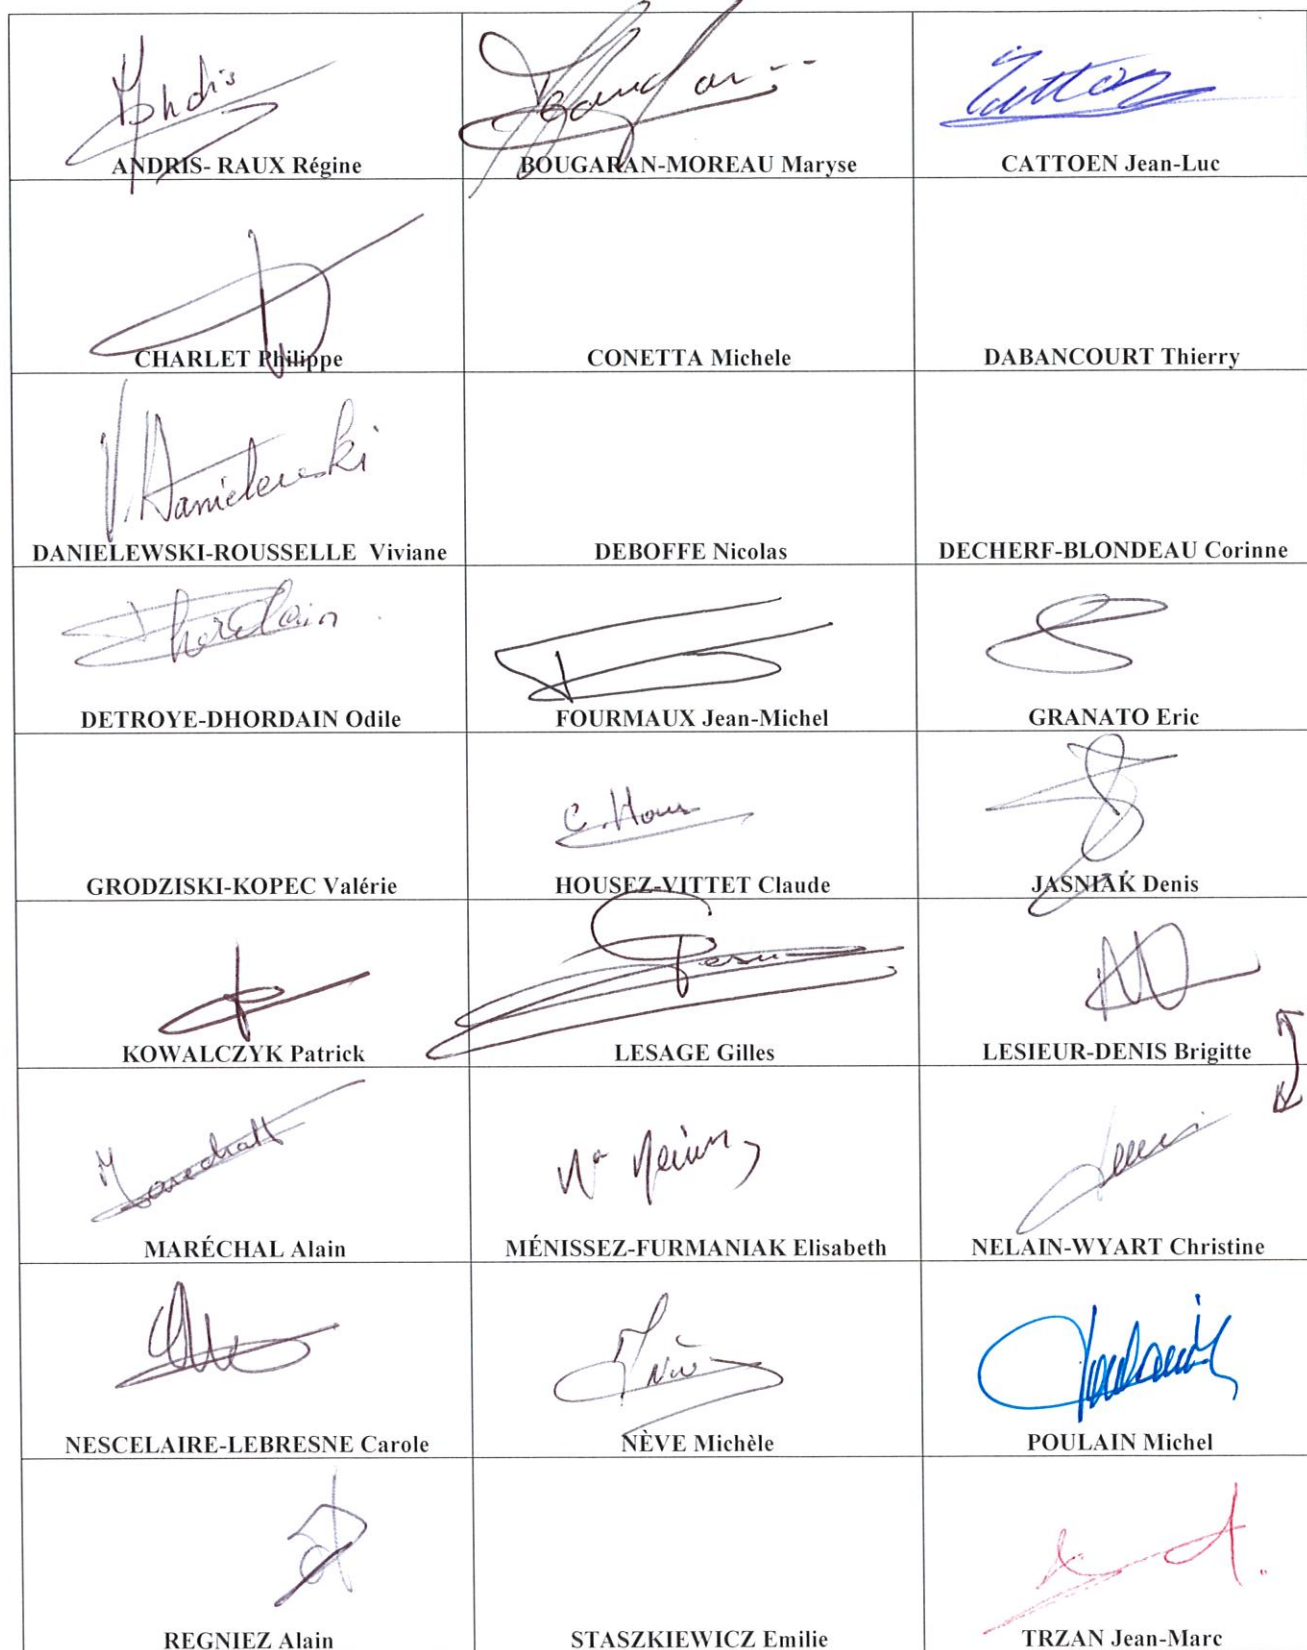 Andris
ANDRIS- RAUX Régine
BOUGARAN-MOREAU Maryse
Cattoen
CATTOEN Jean-Luc
CHARLET Philippe
CONETTA Michele
DABANCOURT Thierry
V. Danielewski
DANIELEWSKI-ROUSSELLE Viviane
DEBOFFE Nicolas
DECHERF-BLONDEAU Corinne
Dhordain
DETROYE-DHORDAIN Odile
FOURMAUX Jean-Michel
GRANATO Eric
GRODZISKI-KOPEC Valérie
C. Hous
HOUSEZ-VITTET Claude
JASNIAK Denis
KOWALCZYK Patrick
LESAGE Gilles
LESIEUR-DENIS Brigitte
MARÉCHAL Alain
MÉNISSEZ-FURMANIAK Elisabeth
NELAIN-WYART Christine
NESCELAIRE-LEBRESNE Carole
NÈVE Michèle
POULAIN Michel
REGNIEZ Alain
STASZKIEWICZ Emilie
TRZAN Jean-Marc